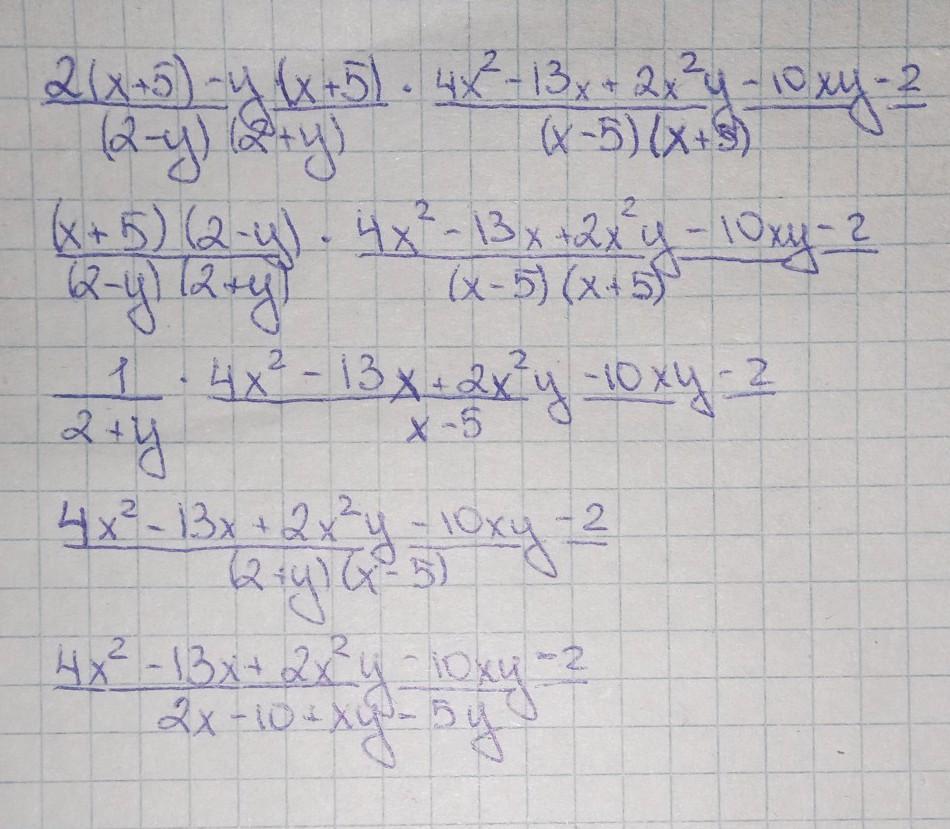 2(x+5)-y(x+5) · 4x²-13x+2x²y-10xy-2
(2-y)(2+y) (x-5)(x+5)
(x+5)(2-y) · 4x²-13x+2x²y-10xy-2
(2-y)(2+y) (x-5)(x+5)
1 · 4x²-13x+2x²y-10xy-2
2+y x-5
4x²-13x+2x²y-10xy-2
(2+y)(x-5)
4x²-13x+2x²y-10xy-2
2x-10+xy-5y